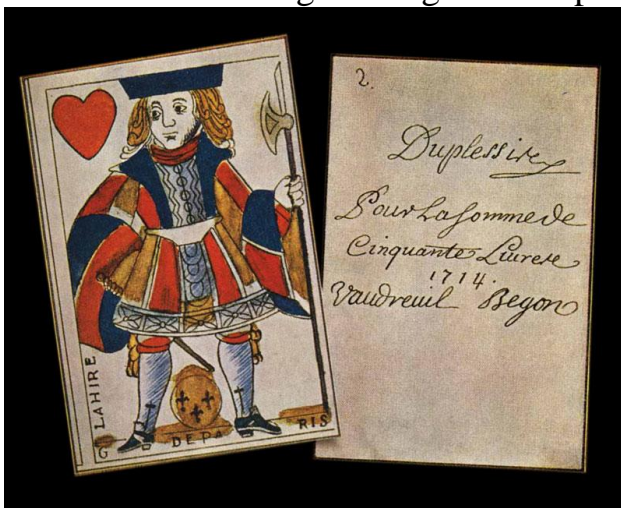 LAHIRE
DE PA RIS
2.
Duplessis
Pour La Somme de
Cinquante Livres
1714.
Vaudreuil Begon